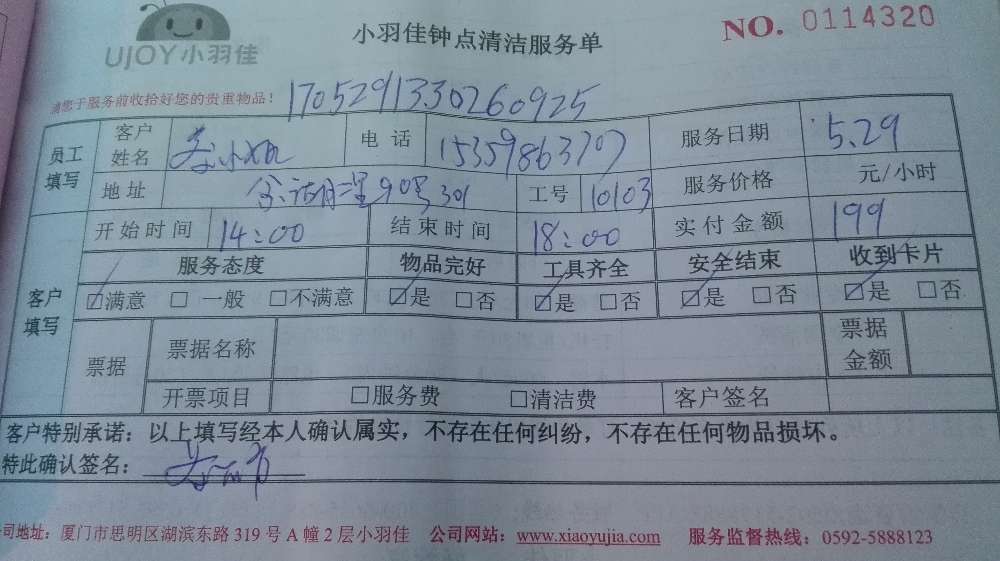 UJOY小羽佳
小羽佳钟点清洁服务单
NO. 0114320
请您于服务前收拾好您的贵重物品！
17052913302609 25
员工填写 客户姓名 电话 15359863707 服务日期 5.29
地址 金湖一里90号301 工号 10103 服务价格 元/小时
客户填写 开始时间 14:00 结束时间 18:00 实付金额 199
服务态度 物品完好 工具齐全 安全结束 收到卡片
☑满意 □一般 □不满意 ☑是 □否 ☑是 □否 ☑是 □否 ☑是 □否
票据 票据名称 票据金额
开票项目 □服务费 □清洁费 客户签名
客户特别承诺：以上填写经本人确认属实，不存在任何纠纷，不存在任何物品损坏。
特此确认签名：
公司地址：厦门市思明区湖滨东路 319 号 A 幢 2 层小羽佳 公司网站：www.xiaoyujia.com 服务监督热线：0592-5888123